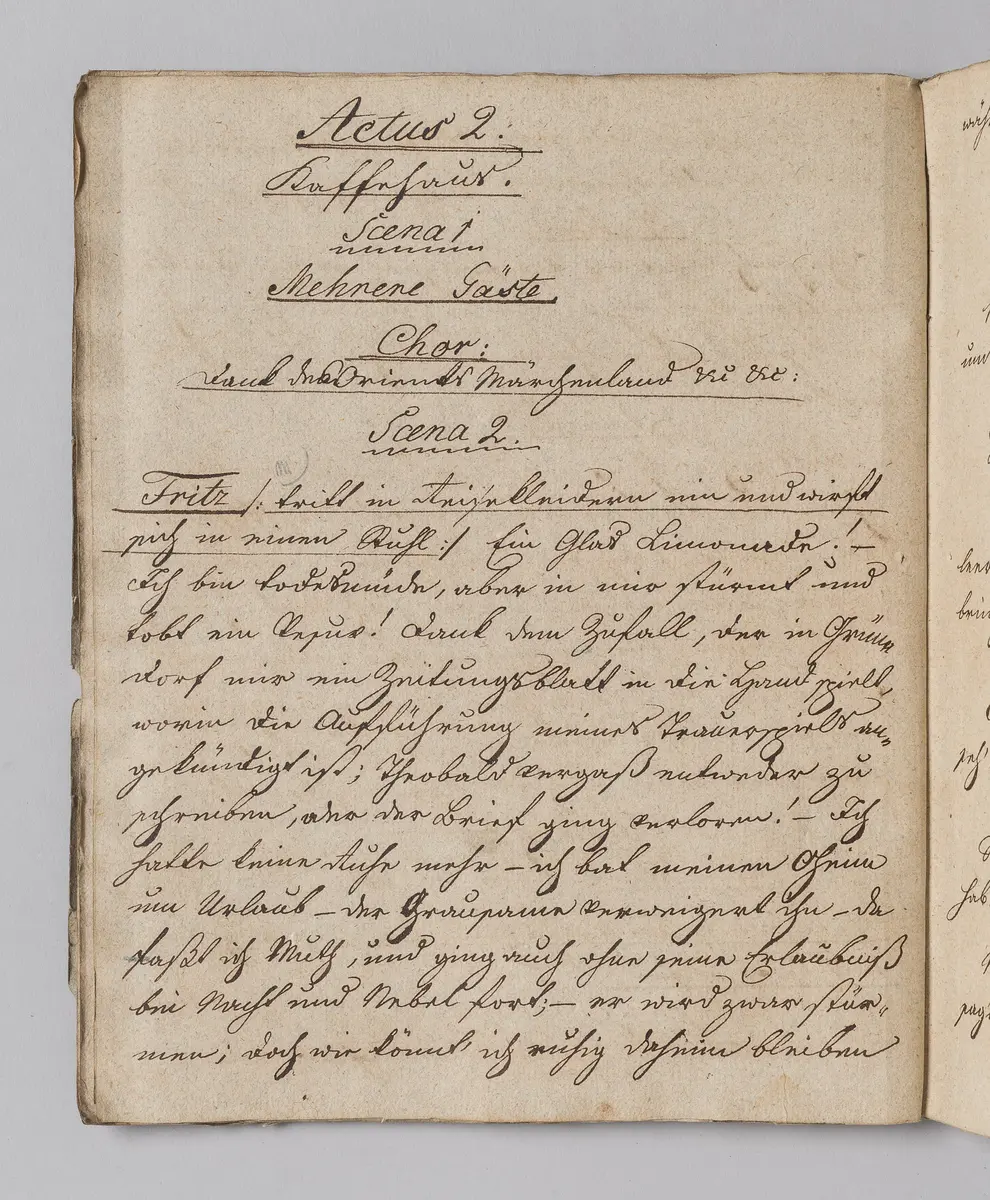 Actus 2.
Kaffehaus.
Scena 1
Mehrere Gäste.
Chor:
Dank des Orients Märchenland &c &c:
Scena 2.
Fritz /: tritt in Reisekleidern ein und wirft
sich in einen Stuhl :/ Ein Glas Limonade! –
Ich bin todesmüde, aber in mir stürmt und
tobt ein Vesuv! Dank dem Zufall, der in Grün„
dorf mir ein Zeitungsblatt in die Hand spielt,
worin die Aufführung meines Trauerspiels an„
gekündigt ist; Theobald vergaß entweder zu
schreiben, oder der Brief ging verloren! – Ich
hatte keine Ruhe mehr – ich bat meinen Oheim
um Urlaub – der Grausame verweigert ihn – da
faßt ich Muth, und ging auch ohne seine Erlaubniß
bei Nacht und Nebel fort; – er wird zwar stür„
men; doch wie könnt' ich ruhig daheim bleiben
wäh
um
leer
brin
seh'
hab
sag